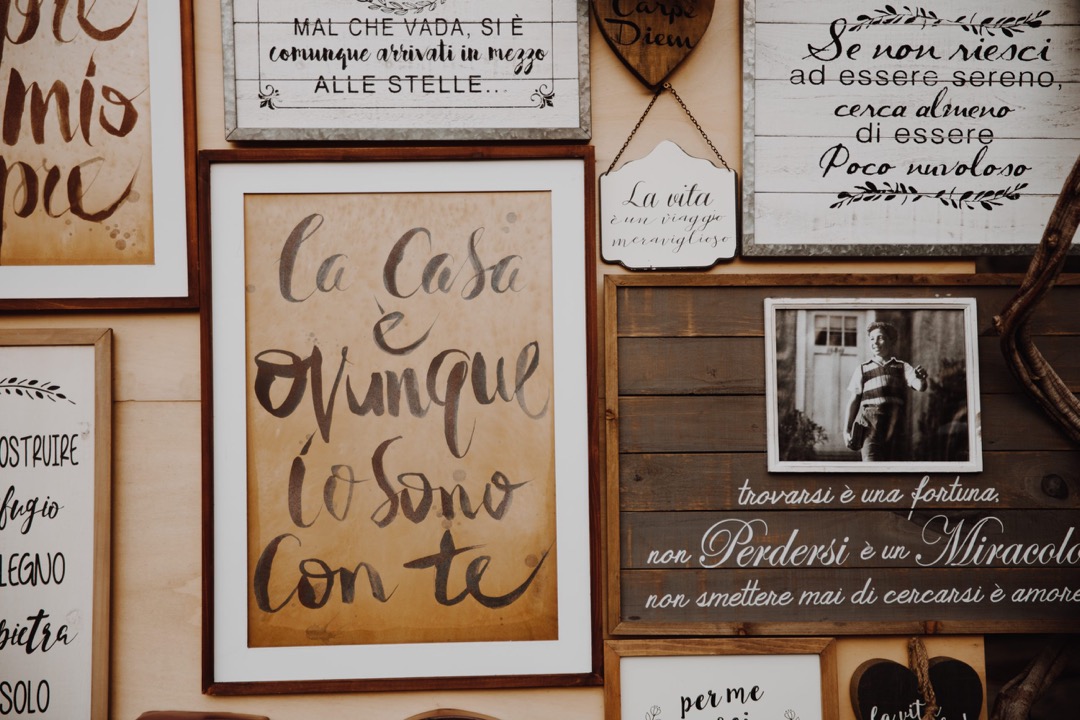 mio
MAL CHE VADA, SI È
comunque arrivati in mezzo
ALLE STELLE...
Carpe
Diem
Se non riesci
ad essere sereno,
cerca almeno
di essere
Poco nuvoloso
La vita
è un viaggio
meraviglioso
la casa
è
ovunque
io sono
con te
OSTRUIRE
fugio
LEGNO
pietra
SOLO
trovarsi è una fortuna,
non Perdersi è un Miracolo
non smettere mai di cercarsi è amore
per me
la vit